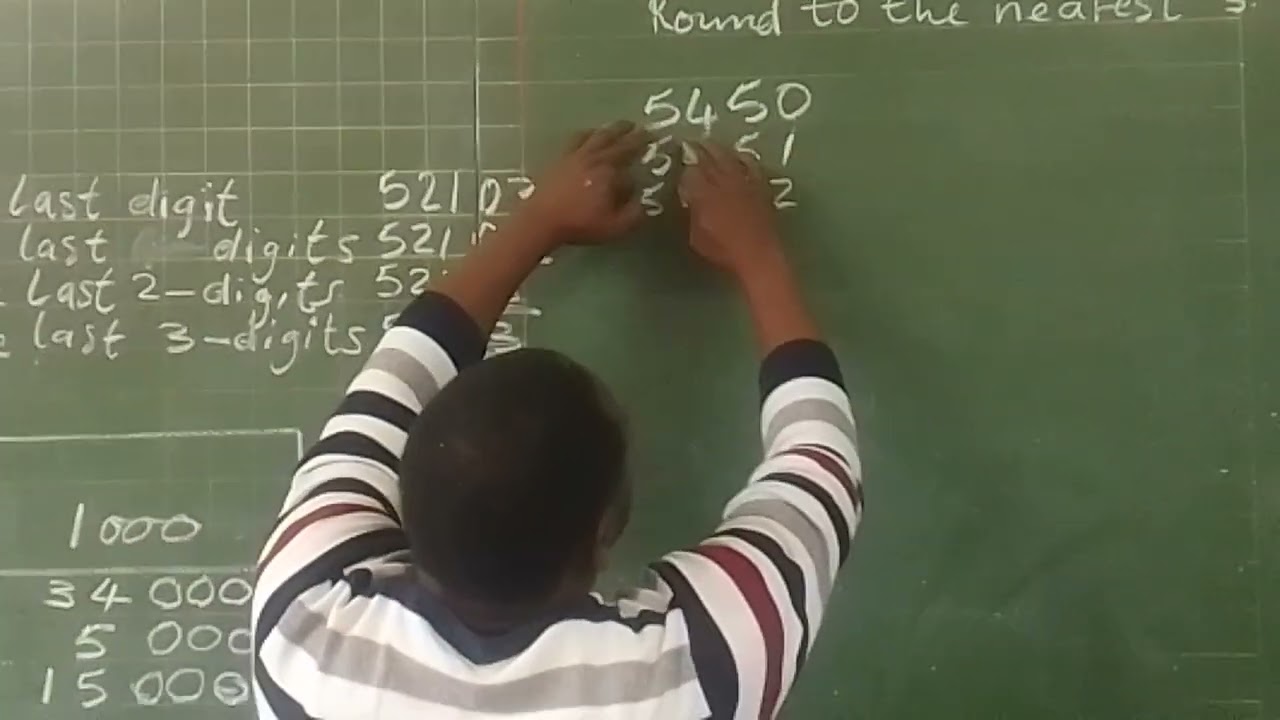 Round to the nearest 5.
5450
5 51
5 2
last digit 5210
last digits 521
last 2-digits 52
last 3-digits 3
1000
34 000
5 000
15 000